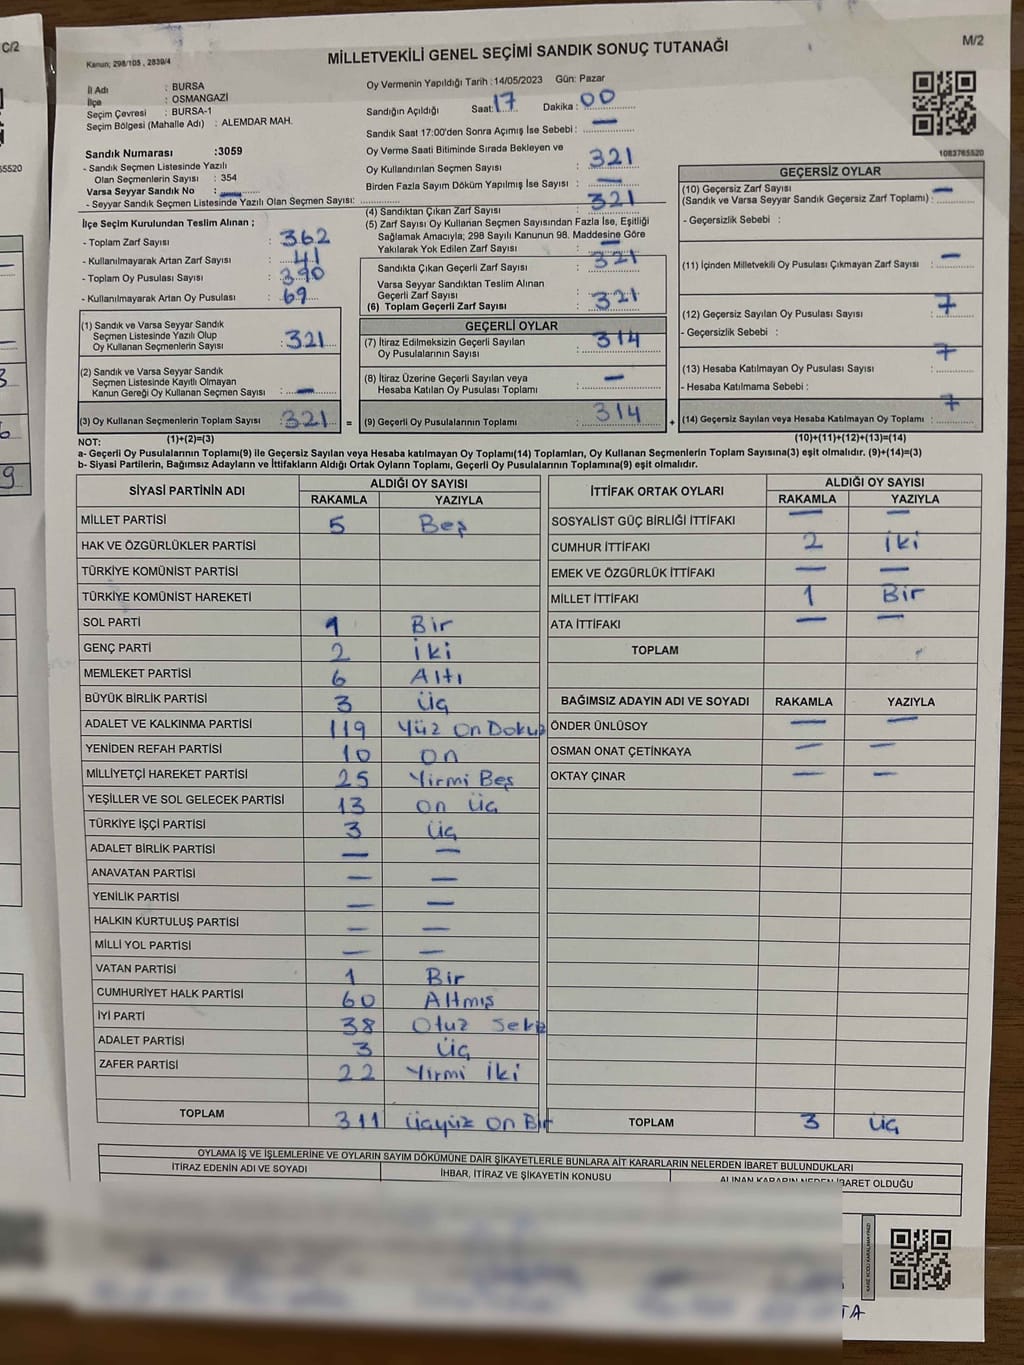 C/2
55520
3
6
9
Kanun; 298/105 , 2839/4
MİLLETVEKİLİ GENEL SEÇİMİ SANDIK SONUÇ TUTANAĞI
M/2
İl Adı : BURSA
İlçe : OSMANGAZİ
Seçim Çevresi : BURSA-1
Seçim Bölgesi (Mahalle Adı) : ALEMDAR MAH.
Sandık Numarası :3059
- Sandık Seçmen Listesinde Yazılı
Olan Seçmenlerin Sayısı : 354
Varsa Seyyar Sandık No : —
- Seyyar Sandık Seçmen Listesinde Yazılı Olan Seçmen Sayısı:
İlçe Seçim Kurulundan Teslim Alınan ;
- Toplam Zarf Sayısı : 362
- Kullanılmayarak Artan Zarf Sayısı : 41
- Toplam Oy Pusulası Sayısı : 390
- Kullanılmayarak Artan Oy Pusulası : 69
(1) Sandık ve Varsa Seyyar Sandık
Seçmen Listesinde Yazılı Olup
Oy Kullanan Seçmenlerin Sayısı : 321
(2) Sandık ve Varsa Seyyar Sandık
Seçmen Listesinde Kayıtlı Olmayan
Kanun Gereği Oy Kullanan Seçmen Sayısı : —
(3) Oy Kullanan Seçmenlerin Toplam Sayısı : 321 =
Oy Vermenin Yapıldığı Tarih : 14/05/2023 Gün: Pazar
Sandığın Açıldığı Saat: 17 Dakika : 00
Sandık Saat 17:00'den Sonra Açımış İse Sebebi : —
Oy Verme Saati Bitiminde Sırada Bekleyen ve
Oy Kullandırılan Seçmen Sayısı : 321
Birden Fazla Sayım Döküm Yapılmış İse Sayısı : —
(4) Sandıktan Çıkan Zarf Sayısı : 321
(5) Zarf Sayısı Oy Kullanan Seçmen Sayısından Fazla İse, Eşitliği
Sağlamak Amacıyla; 298 Sayılı Kanunun 98. Maddesine Göre
Yakılarak Yok Edilen Zarf Sayısı : —
Sandıkta Çıkan Geçerli Zarf Sayısı : 321
Varsa Seyyar Sandıktan Teslim Alınan
Geçerli Zarf Sayısı :
(6) Toplam Geçerli Zarf Sayısı : 321
GEÇERLİ OYLAR
(7) İtiraz Edilmeksizin Geçerli Sayılan
Oy Pusulalarının Sayısı : 314
(8) İtiraz Üzerine Geçerli Sayılan veya
Hesaba Katılan Oy Pusulası Toplamı : —
(9) Geçerli Oy Pusulalarının Toplamı : 314 +
1083765520
GEÇERSİZ OYLAR
(10) Geçersiz Zarf Sayısı
(Sandık ve Varsa Seyyar Sandık Geçersiz Zarf Toplamı) : —
- Geçersizlik Sebebi :
(11) İçinden Milletvekili Oy Pusulası Çıkmayan Zarf Sayısı : —
(12) Geçersiz Sayılan Oy Pusulası Sayısı : 7
- Geçersizlik Sebebi :
(13) Hesaba Katılmayan Oy Pusulası Sayısı : 7
- Hesaba Katılmama Sebebi :
(14) Geçersiz Sayılan veya Hesaba Katılmayan Oy Toplamı : 7
NOT: (1)+(2)=(3) (10)+(11)+(12)+(13)=(14)
a- Geçerli Oy Pusulalarının Toplamı(9) ile Geçersiz Sayılan veya Hesaba katılmayan Oy Toplamı(14) Toplamları, Oy Kullanan Seçmenlerin Toplam Sayısına(3) eşit olmalıdır. (9)+(14)=(3)
b- Siyasi Partilerin, Bağımsız Adayların ve İttifakların Aldığı Ortak Oyların Toplamı, Geçerli Oy Pusulalarının Toplamına(9) eşit olmalıdır.
SİYASİ PARTİNİN ADI ALDIĞI OY SAYISI
RAKAMLA YAZIYLA
MİLLET PARTİSİ 5 Beş
HAK VE ÖZGÜRLÜKLER PARTİSİ
TÜRKİYE KOMÜNİST PARTİSİ
TÜRKİYE KOMÜNİST HAREKETİ
SOL PARTİ 1 Bir
GENÇ PARTİ 2 İki
MEMLEKET PARTİSİ 6 Altı
BÜYÜK BİRLİK PARTİSİ 3 Üç
ADALET VE KALKINMA PARTİSİ 119 Yüz On Dokuz
YENİDEN REFAH PARTİSİ 10 On
MİLLİYETÇİ HAREKET PARTİSİ 25 Yirmi Beş
YEŞİLLER VE SOL GELECEK PARTİSİ 13 On Üç
TÜRKİYE İŞÇİ PARTİSİ 3 Üç
ADALET BİRLİK PARTİSİ — —
ANAVATAN PARTİSİ — —
YENİLİK PARTİSİ — —
HALKIN KURTULUŞ PARTİSİ — —
MİLLİ YOL PARTİSİ — —
VATAN PARTİSİ 1 Bir
CUMHURİYET HALK PARTİSİ 60 Altmış
İYİ PARTİ 38 Otuz Sekiz
ADALET PARTİSİ 3 Üç
ZAFER PARTİSİ 22 Yirmi İki
TOPLAM 311 Üçyüz On Bir
İTTİFAK ORTAK OYLARI ALDIĞI OY SAYISI
RAKAMLA YAZIYLA
SOSYALİST GÜÇ BİRLİĞİ İTTİFAKI — —
CUMHUR İTTİFAKI 2 İki
EMEK VE ÖZGÜRLÜK İTTİFAKI — —
MİLLET İTTİFAKI 1 Bir
ATA İTTİFAKI — —
TOPLAM
BAĞIMSIZ ADAYIN ADI VE SOYADI RAKAMLA YAZIYLA
ÖNDER ÜNLÜSOY — —
OSMAN ONAT ÇETİNKAYA — —
OKTAY ÇINAR — —
TOPLAM 3 Üç
OYLAMA İŞ VE İŞLEMLERİNE VE OYLARIN SAYIM DÖKÜMÜNE DAİR ŞİKAYETLERLE BUNLARA AİT KARARLARIN NELERDEN İBARET BULUNDUKLARI
İTİRAZ EDENİN ADI VE SOYADI İHBAR, İTİRAZ VE ŞİKAYETİN KONUSU ALINAN KARARIN NEDEN İBARET OLDUĞU
TA